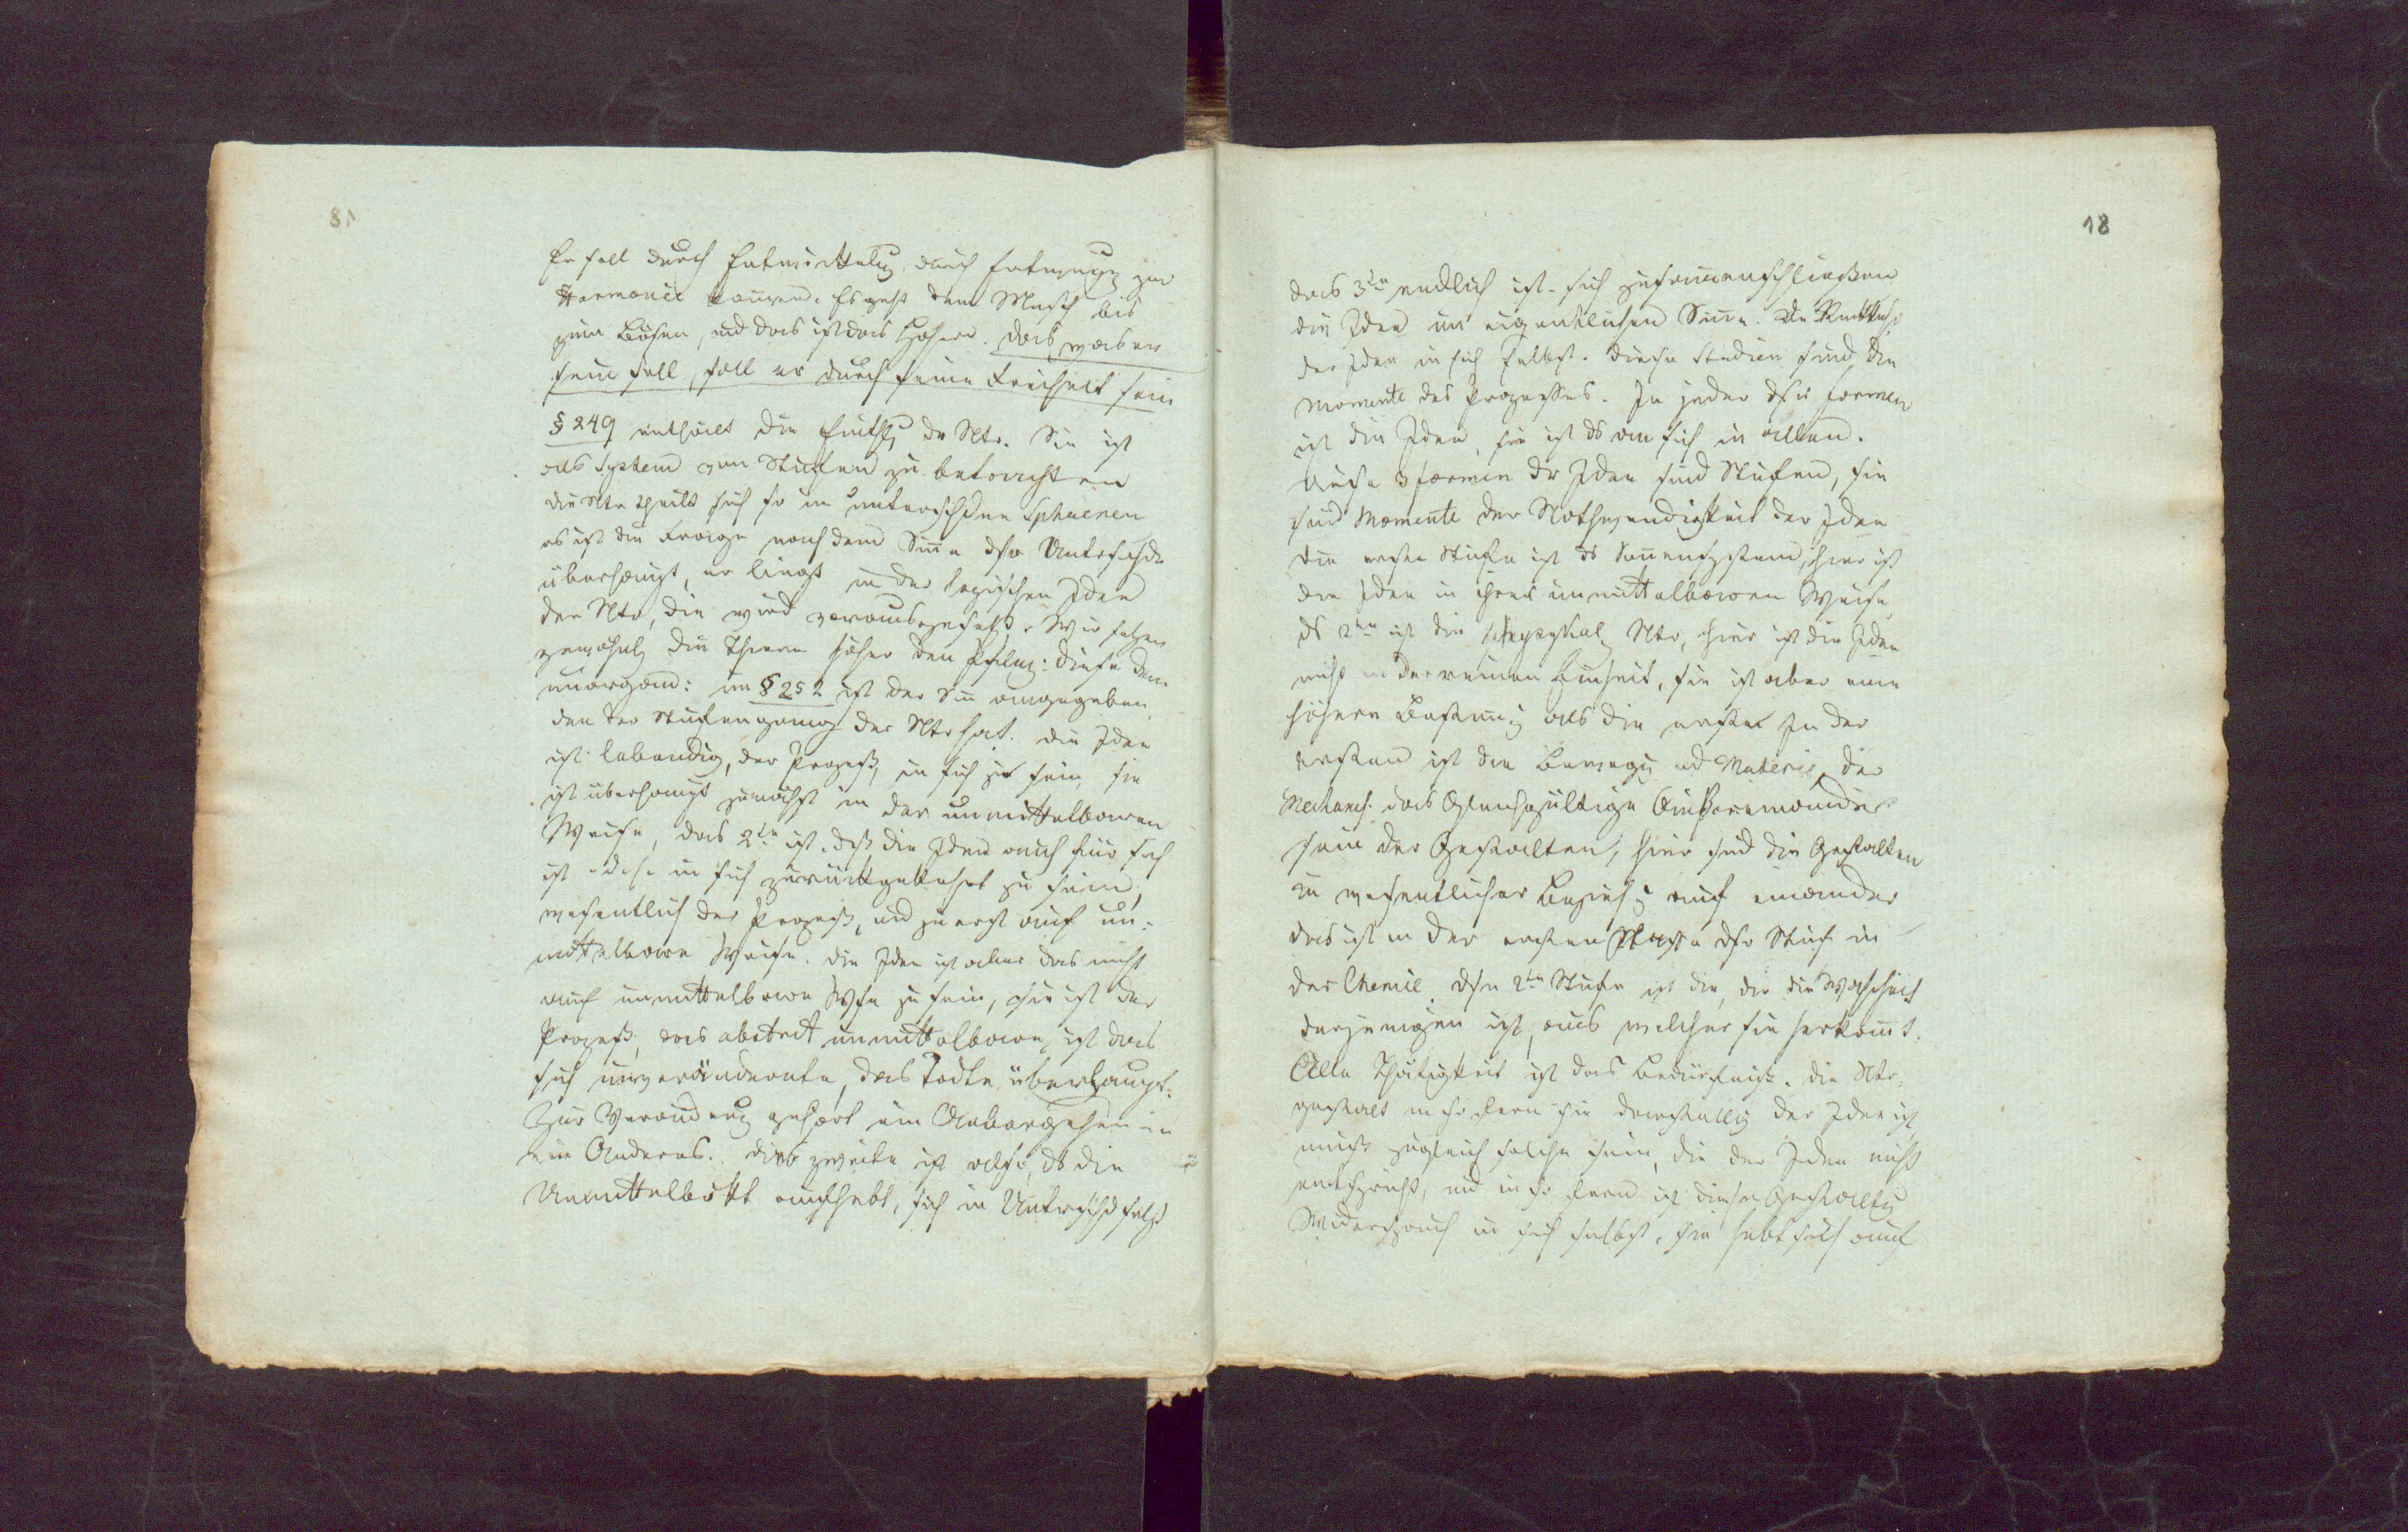 Er soll durch Entwicklg durch Entzweyg zur
Harmonie kommen. Es geht dem Mensch bis
zum Bösen, und das ist das Höhere. Das was er
sein soll, soll er durch seine Freiheit sein
§ 249 enthält die Einthlg der Ntr. Sie ist
als System von Stufen zu betrachten
die Ntr theilt sich so in unterschdne Sphaeren
es ist die Frage nach dem Sinne dsr Unterschde
überhaupt, er liegt in der logischen Idee
der Ntr, die wird vorausgesetzt. Wir setzen
gewöhnl die Thiere höher den Pflnz: diese dem
unorgan: im § 252 ist der Sin angegeben,
den der Stufengang der Ntr hat. die Idee
ist lebendig, der Prozeß, in sich zu sein, sie
ist überhaupt zunächst in der unmittelbaren
Weise, das 2te ist, daß die Idee auch für sich
ist d. h. in sich zurückgekehrt zu sein
wesentlich der Prozeß, und zuerst auf un-
mittelbare Weise. die Idee ist aber das nicht
auf unmittelbare Wse zu sein, sie ist der
Prozeß, das abstract unmittelbare, ist das
sich unverändernte, das Todte überhaupt.
Zur Verändrung gehört ein Uebergehen in
ein Anderes. das zweite ist also, ds die
Unmittelbkt aufhebt, sich in Unterschd setzt
18
das 3te endlich ist sich zusammenschließen
die Idee im eigentlichen Sinne. die Rückkehr
der Idee in sich selbst. diese Stadien sind die
Momente des Prozesses. In jeder dsr Formen
ist die Idee, sie ist ds an sich in allen.
diese 3 Formen dr Idee sind Stufen, sie
sind Momente der Nothwendigkeit der Idee
die erste Stufe ist ds Sonnensystem, hier ist
die Idee in ihrer unmittelbaren Weise,
ds 2te ist die physykal Ntr, hier ist die Idee
nicht in der reinen Einheit, sie ist aber eine
höhere Bestimg als die erste. In der
ersten ist die Bewegg und Materie, der
Mechanis. das Gleichgültige Außereinander
sein der Gestalten, hier sind die Gestalten
in wesentlicher Beziehg auf einander
das ist in der ersten dsr Stufe in
der Chemie. dse 2te Stufe ist die, die die Wahrheit
derjenigen ist, aus welcher sie herkommt.
Alle Thätigkeit ist das Bedürfniß. die Ntr-
gestalt in so fern sie Darstellg der Idee ist
muß zugleich solche sein, die der Idee nicht
entspricht, und in so fern ist diese Gestaltg
Widerspruch in sich selbst, sie hebt sich auf